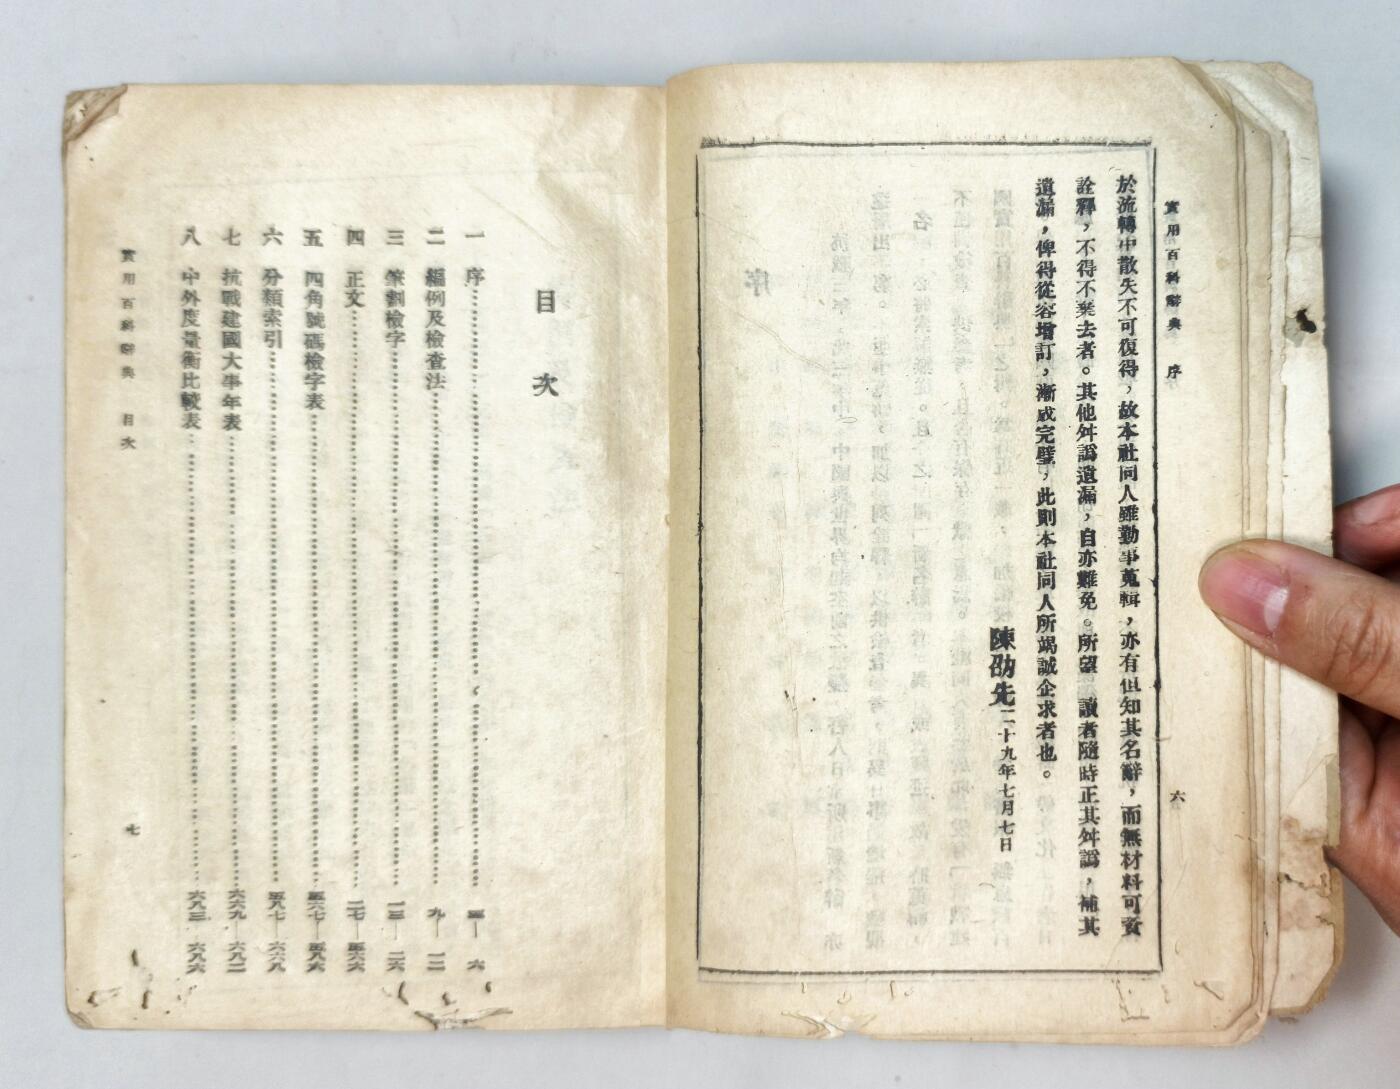 實用百科辭典 序 六
於流轉中散失不可復得，故本社同人雖勤事蒐輯，亦有但知其名辭，而無材料可資
詮釋，不得不棄去者。其他舛譌遺漏，自亦難免。所望 讀者隨時正其舛譌，補其
遺漏，俾得從容增訂，漸成完璧，此則本社同人所竭誠企求者也。
陳劭先 二十九年七月七日
目次
一 序 五—六
二 編例及檢查法 九—一二
三 筆劃檢字 一三—二六
四 正文 二七—五六六
五 四角號碼檢字表 五六七—五八六
六 分類索引 五八七—六六八
七 抗戰建國大事年表 六六九—六八二
八 中外度量衡比較表 六八三—六八六
實用百科辭典 目次 七